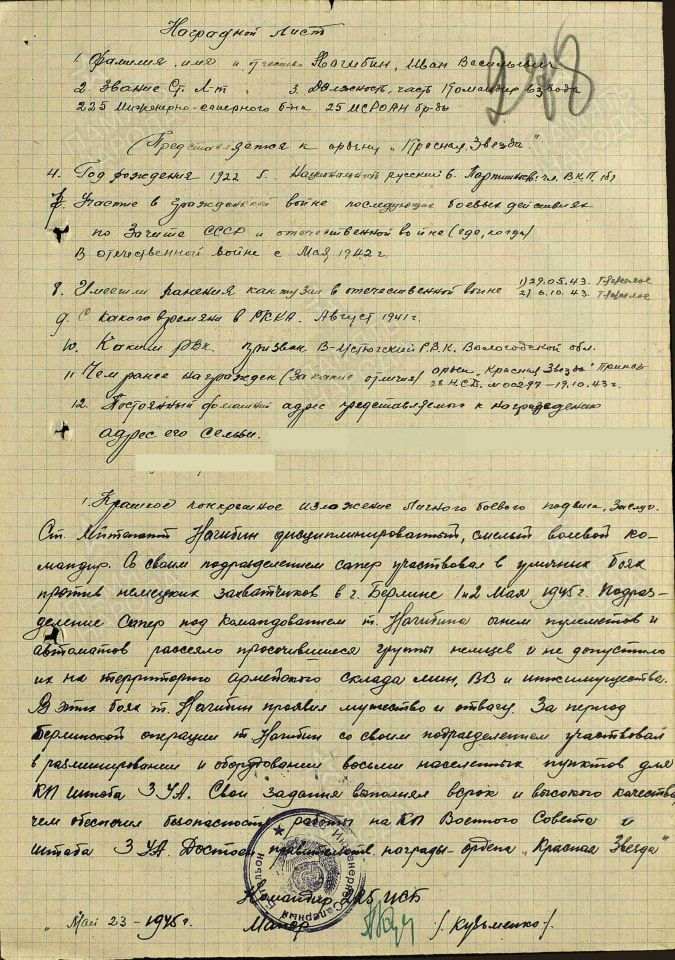 Наградной лист
278
1. Фамилия, имя и отчество Нагибин, Иван Васильевич
2. Звание Ст. Л-т 3. Должность, часть Командир взвода
225 Инженерно-саперного б-на 25 ИСРОАН бр-ды
(Представляется к ордену "Красная Звезда.")
4. Год рождения 1922 г. Национальн. русский 6. Партийность чл. В.К.П. (б)
7. Участие в гражданской войне последующих боевых действиях
по Защите СССР и отечественной войне (где, когда)
В отечественной войне с Мая 1942 г.
8. Имеет ли ранения контузии в отечественной войне 1) 29.05.43. тяжелое
2) 6.10.43. тяжелое
9. С какого времени в РККА. Август 1941 г.
10. Каким РВК. призван В-Устюгский Р.В.К. Вологодской обл.
11 Чем ранее награжден (За какие отличия) орден "Красная Звезда" Приказ
28 И.С.Б. №00297 - 19.10.43 г.
12. Постоянный домашний адрес представляемого к награждению
адрес его семьи.
1. Краткое конкретное изложение личного боевого подвига, Заслуг.
Ст. Лейтенант Нагибин дисциплинированный, смелый волевой ко-
мандир. Со своим подразделением сапер участвовал в уличных боях
против немецких захватчиков в г. Берлине 1 и 2 Мая 1945 г. Подраз-
деление Сапер под командованием т. Нагибина огнем пулеметов и
автоматов рассеяло просочившиеся группы немцев и не допустило
их на территорию армейского склада мин, ВВ и инжимущества.
В этих боях т. Нагибин проявил мужество и отвагу. За период
Берлинской операции т. Нагибин со своим подразделением участвовал
в разминировании и оборудовании восьми населенных пунктов для
КП штаба 3 УА. Свои задания выполнял в срок и высокого качества,
чем обеспечил безопасность работы на КП Военного Совета и
штаба 3 УА. Достоин правительств. награды - ордена "Красная Звезда"
Инженерно-Саперный Батальон
Командир 225 ИСБ
"Май 23 - 1945 г. Майор /. Кузьменко /.